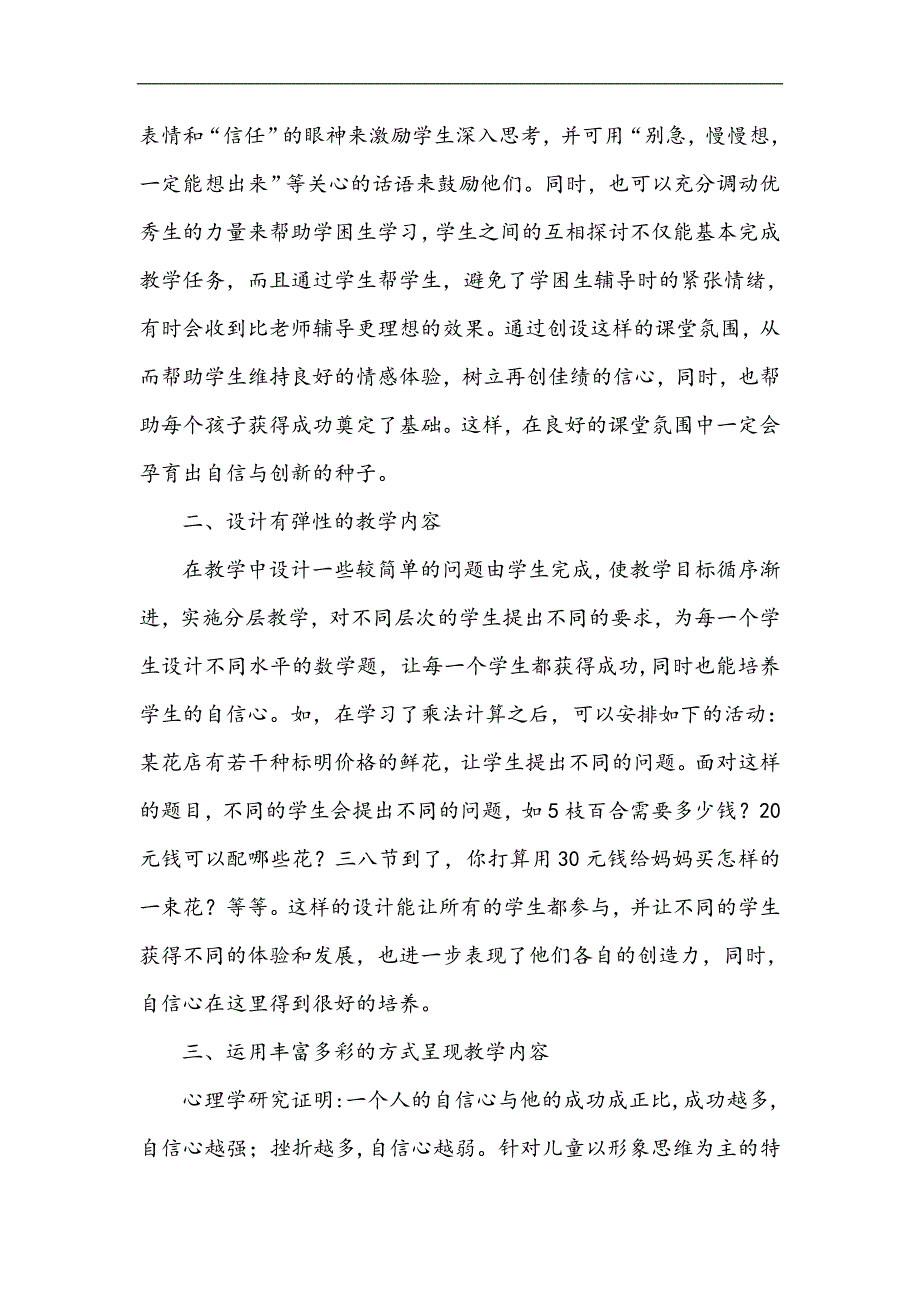 表情和“信任”的眼神来激励学生深入思考，并可用“别急，慢慢想，
一定能想出来”等关心的话语来鼓励他们。同时，也可以充分调动优
秀生的力量来帮助学困生学习，学生之间的互相探讨不仅能基本完成
教学任务，而且通过学生帮学生，避免了学困生辅导时的紧张情绪，
有时会收到比老师辅导更理想的效果。通过创设这样的课堂氛围，从
而帮助学生维持良好的情感体验，树立再创佳绩的信心，同时，也帮
助每个孩子获得成功奠定了基础。这样，在良好的课堂氛围中一定会
孕育出自信与创新的种子。
二、设计有弹性的教学内容
在教学中设计一些较简单的问题由学生完成，使教学目标循序渐
进，实施分层教学，对不同层次的学生提出不同的要求，为每一个学
生设计不同水平的数学题，让每一个学生都获得成功，同时也能培养
学生的自信心。如，在学习了乘法计算之后，可以安排如下的活动：
某花店有若干种标明价格的鲜花，让学生提出不同的问题。面对这样
的题目，不同的学生会提出不同的问题，如 5 枝百合需要多少钱？20
元钱可以配哪些花？三八节到了，你打算用 30 元钱给妈妈买怎样的
一束花？等等。这样的设计能让所有的学生都参与，并让不同的学生
获得不同的体验和发展，也进一步表现了他们各自的创造力，同时，
自信心在这里得到很好的培养。
三、运用丰富多彩的方式呈现教学内容
心理学研究证明：一个人的自信心与他的成功成正比，成功越多，
自信心越强；挫折越多，自信心越弱。针对儿童以形象思维为主的特